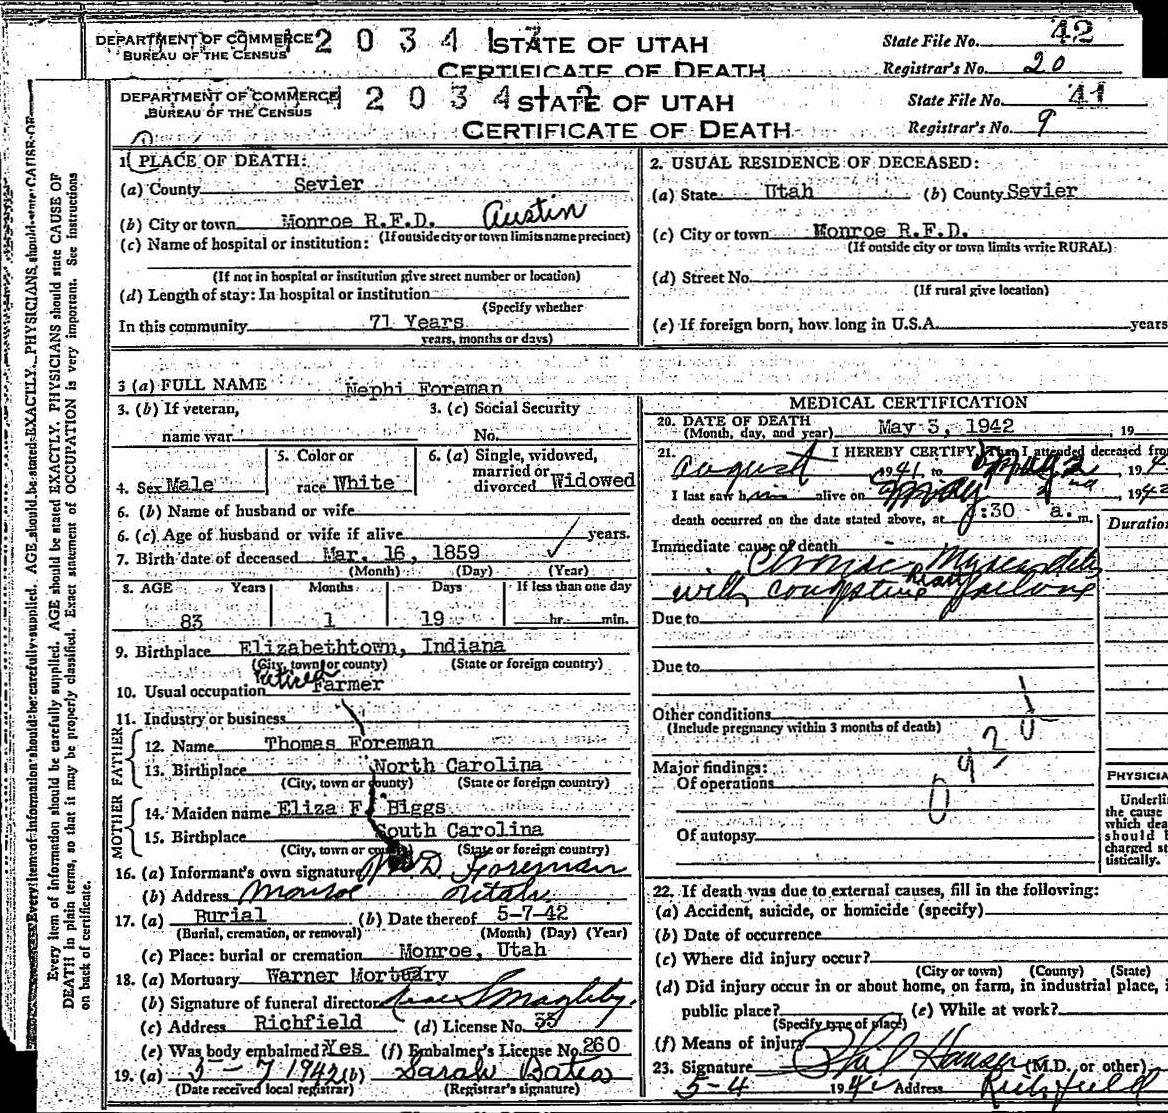 DEPARTMENT OF COMMERCE
BUREAU OF THE CENSUS
STATE OF UTAH
CERTIFICATE OF DEATH
State File No. 42
Registrar's No. 20
DEPARTMENT OF COMMERCE
BUREAU OF THE CENSUS
STATE OF UTAH
CERTIFICATE OF DEATH
State File No. 41
Registrar's No. 9
Every item of information should be carefully supplied. AGE should be stated EXACTLY. PHYSICIANS should state CAUSE OF
DEATH in plain terms, so that it may be properly classified. Exact statement of OCCUPATION is very important. See instructions
on back of certificate.
1. PLACE OF DEATH:
(a) County Sevier
(b) City or town Monroe R.F.D. Austin
(If outside city or town limits name precinct)
(c) Name of hospital or institution:
(If not in hospital or institution give street number or location)
(d) Length of stay: In hospital or institution
(Specify whether
In this community 71 Years
years, months or days)
2. USUAL RESIDENCE OF DECEASED:
(a) State Utah (b) County Sevier
(c) City or town Monroe R.F.D.
(If outside city or town limits write RURAL)
(d) Street No.
(If rural give location)
(e) If foreign born, how long in U.S.A. years
3 (a) FULL NAME Nephi Foreman
3. (b) If veteran,
name war
3. (c) Social Security
No.
4. Sex Male
5. Color or
race White
6. (a) Single, widowed,
married or
divorced Widowed
6. (b) Name of husband or wife
6. (c) Age of husband or wife if alive years.
7. Birth date of deceased Mar. 16, 1859
(Month) (Day) (Year)
8. AGE Years Months Days If less than one day
83 1 19 hr. min.
9. Birthplace Elizabethtown, Indiana
(City, town or county) (State or foreign country)
10. Usual occupation retired Farmer
11. Industry or business
FATHER
12. Name Thomas Foreman
13. Birthplace North Carolina
(City, town or county) (State or foreign country)
MOTHER
14. Maiden name Eliza F. Biggs
15. Birthplace South Carolina
(City, town or county) (State or foreign country)
16. (a) Informant's own signature D. Foreman
(b) Address Monroe Utah
17. (a) Burial (b) Date thereof 5-7-42
(Burial, cremation, or removal) (Month) (Day) (Year)
(c) Place: burial or cremation Monroe, Utah
18. (a) Mortuary Warner Mortuary
(b) Signature of funeral director
(c) Address Richfield (d) License No. 33
(e) Was body embalmed? Yes (f) Embalmer's License No. 260
19. (a) 5-7 1942 (b) Sarah Bates
(Date received local registrar) (Registrar's signature)
MEDICAL CERTIFICATION
20. DATE OF DEATH
(Month, day, and year) May 3, 1942 19
21. I HEREBY CERTIFY, That I attended deceased from
August 1941 to May 2 194
I last saw him alive on May 2nd, 1942
death occurred on the date stated above, at :30 a.m.
Duration
Immediate cause of death
Chronic Myocarditis
with congestive heart failure
Due to
Due to
Other conditions
(Include pregnancy within 3 months of death)
Major findings:
Of operations
Of autopsy
PHYSICIA
Underli
the cause
which dea
should
charged st
tistically.
22. If death was due to external causes, fill in the following:
(a) Accident, suicide, or homicide (specify)
(b) Date of occurrence
(c) Where did injury occur?
(City or town) (County) (State)
(d) Did injury occur in or about home, on farm, in industrial place, i
public place? (e) While at work?
(Specify type of place)
(f) Means of injury
23. Signature Hansen (M.D. or other)
5-4 194 Address Richfield